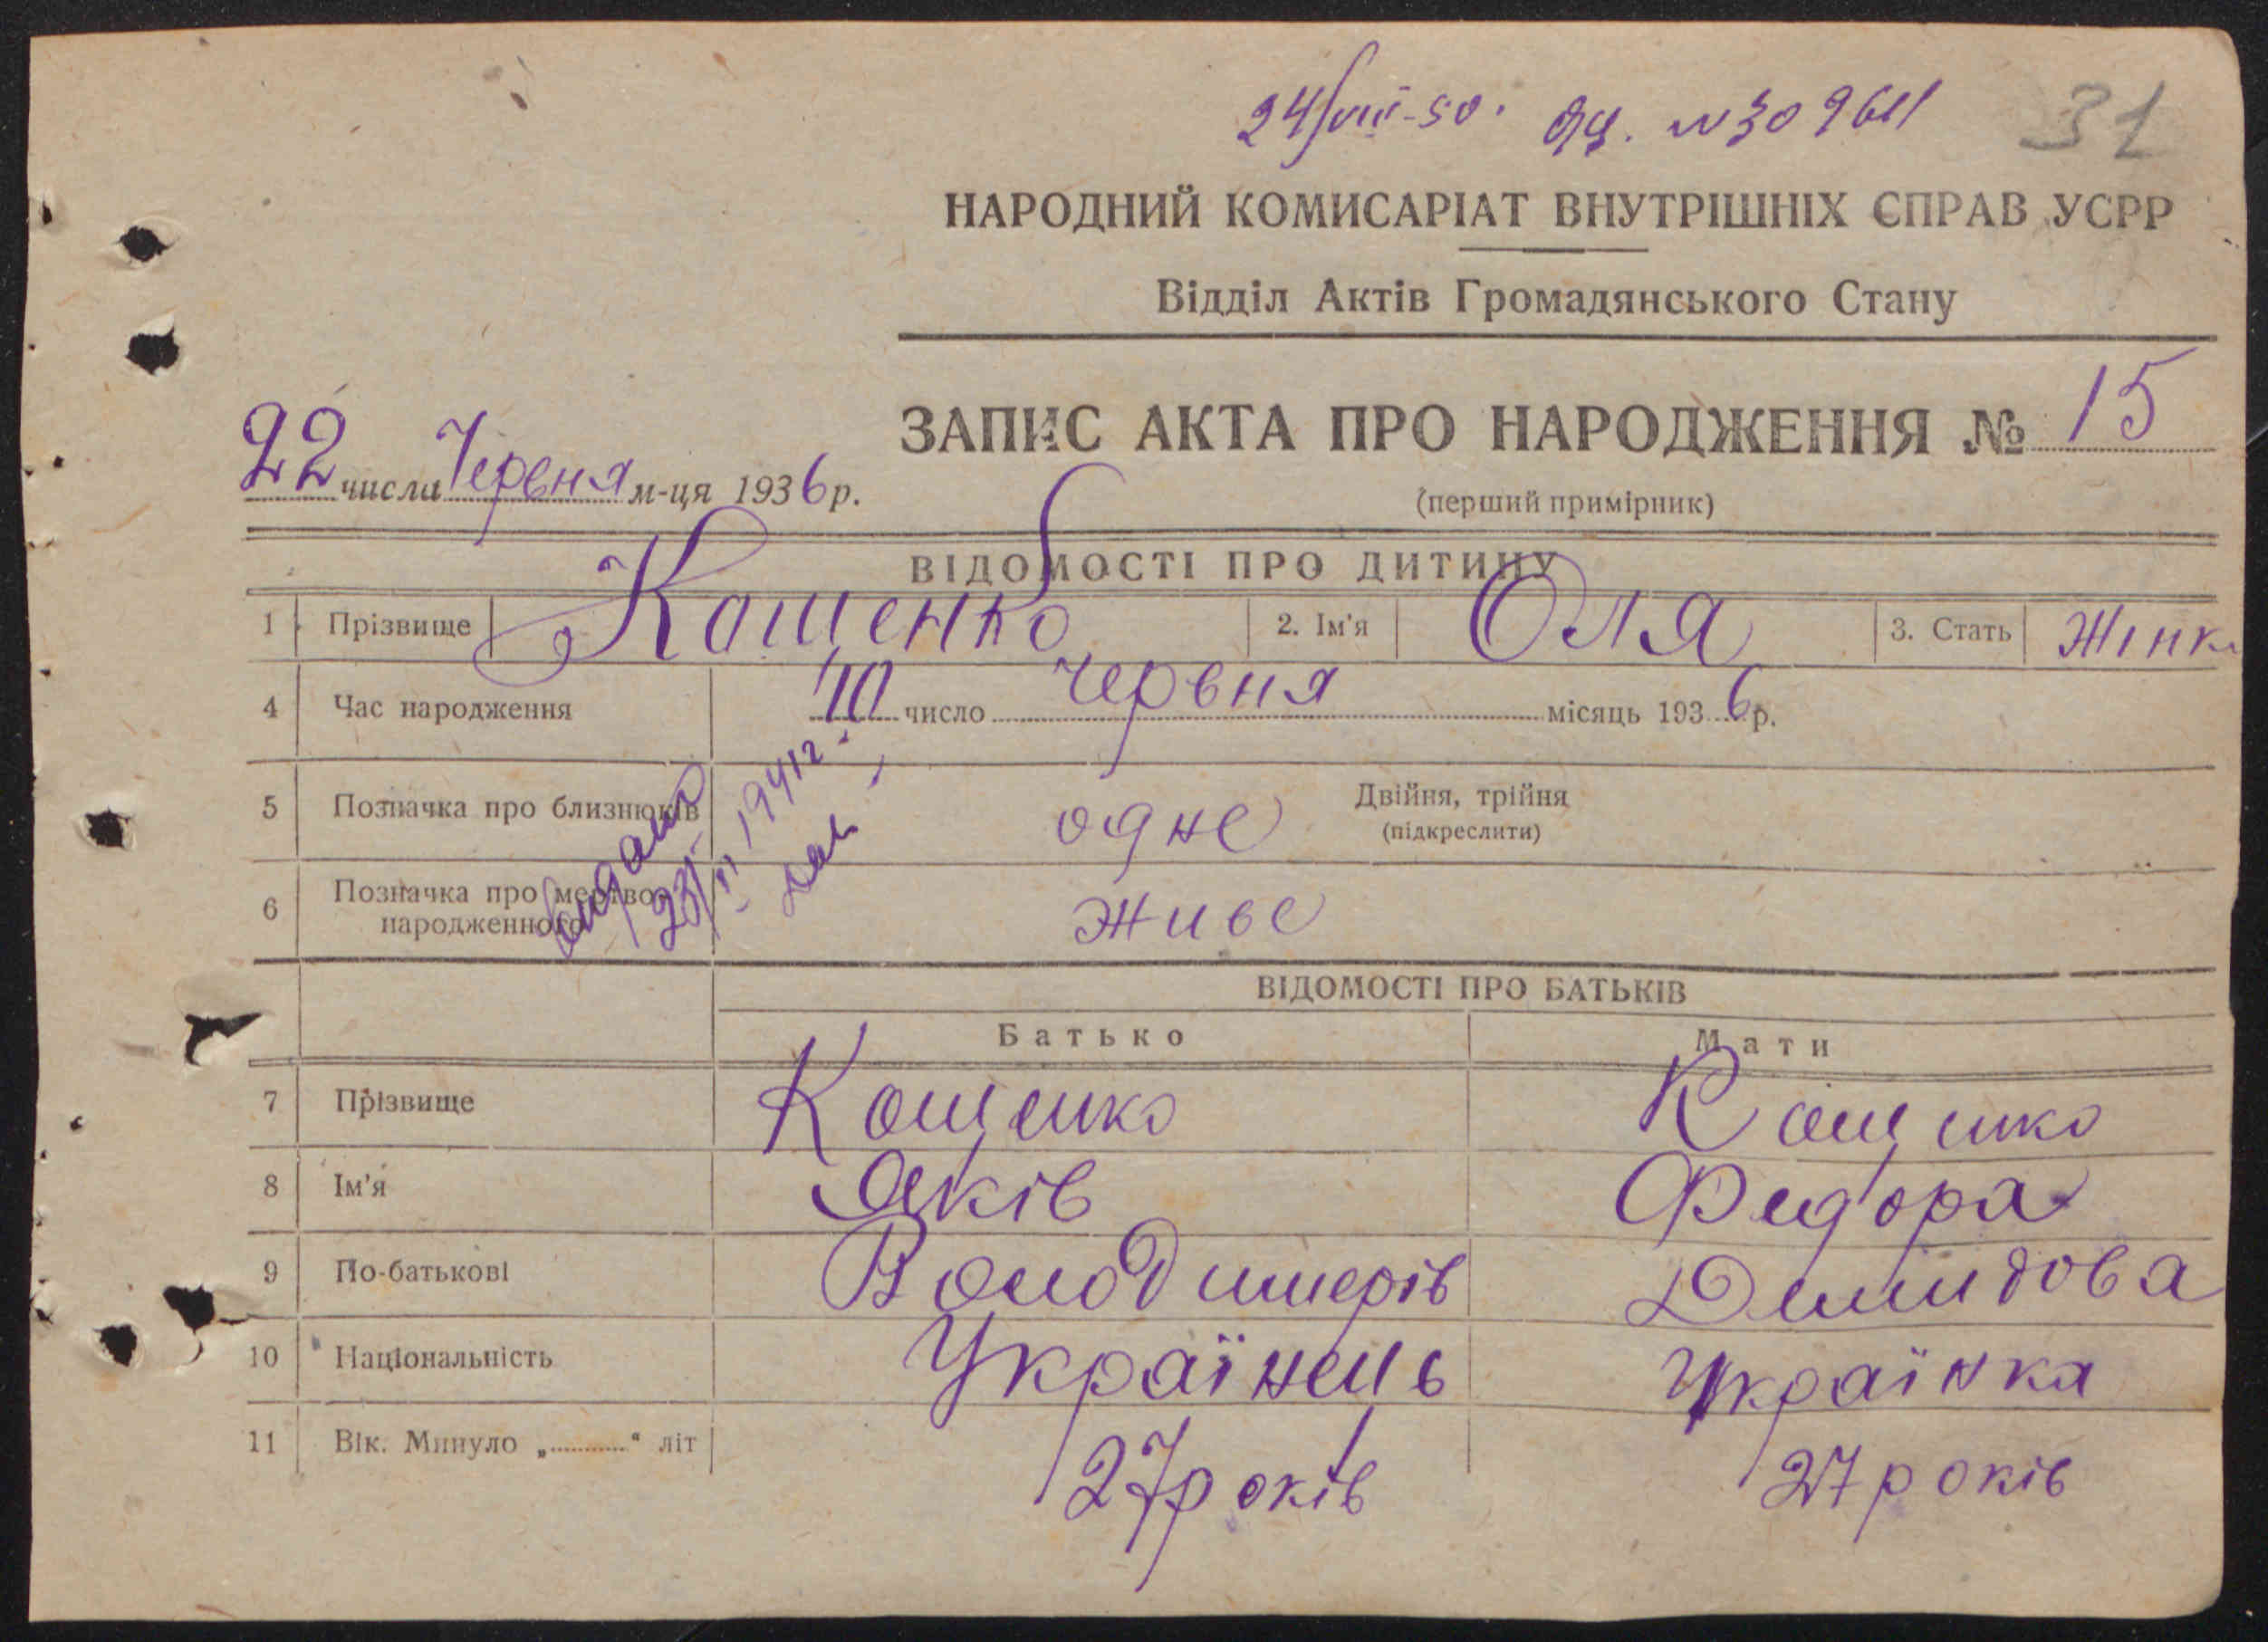 24/VIII-50. ЯЦ. N 309611
31
НАРОДНИЙ КОМИСАРІАТ ВНУТРІШНІХ СПРАВ УСРР
Відділ Актів Громадянського Стану
ЗАПИС АКТА ПРО НАРОДЖЕННЯ № 15
22 числа Червня м-ця 1936 р.
(перший примірник)
ВІДОМОСТІ ПРО ДИТИНУ
1 Прізвище Кощенко 2. Ім'я Оля 3. Стать Жінк
4 Час народження 10 число червня місяць 1936 р.
5 Позначка про близнюків одне Двійня, трійня
(підкреслити)
6 Позначка про мертво-
народженного живе
видано
23/ 1941 г.
ВІДОМОСТІ ПРО БАТЬКІВ
Батько Мати
7 Прізвище Кощенко Кощенко
8 Ім'я Яків Федора
9 По-батькові Володимерів Демидова
10 Національність Українець Українка
11 Вік. Минуло „............“ літ 27 років 27 років